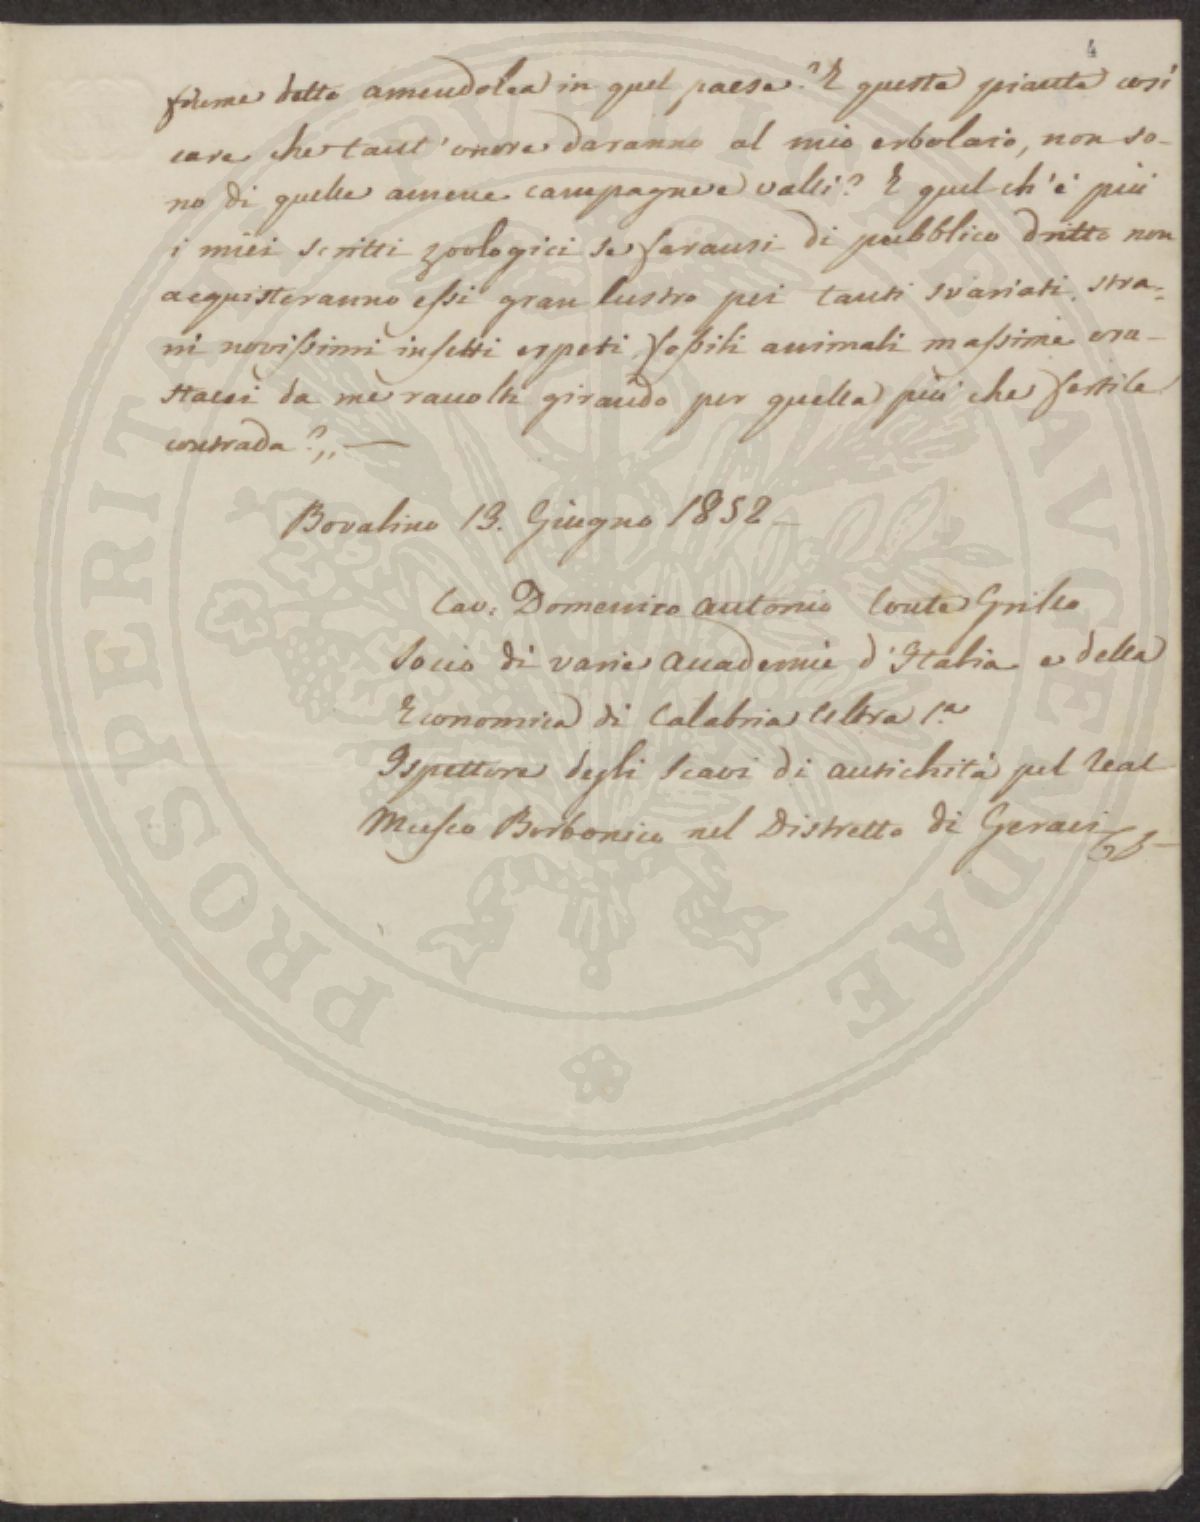 4
fiume detto amendolea in quel paese? E queste piante così
care che tant'onore daranno al mio erbolaio, non so-
no di quelle amene campagne e valli? E quel ch'è più
i miei scritti zoologici se faransi di pubblico dritto non
acquisteranno essi gran lustro pei tanti svariati, stra-
ni novissimi insetti erpeti fossili animali massime cra-
stacei da me raccolti girando per quella più che fertile
contrada?,, —
Bovalino 13. Giugno 1852 —
Cav: Domenico Antonio Conte Grillo
Socio di varie Accademie d'Italia e della
Economica di Calabria Ultra 1.a
Ispettore degli Scavi di antichità pel Real
Museo Borbonico nel Distretto di Geraci
PROSPERITATI PUBLICAE AUGENDAE